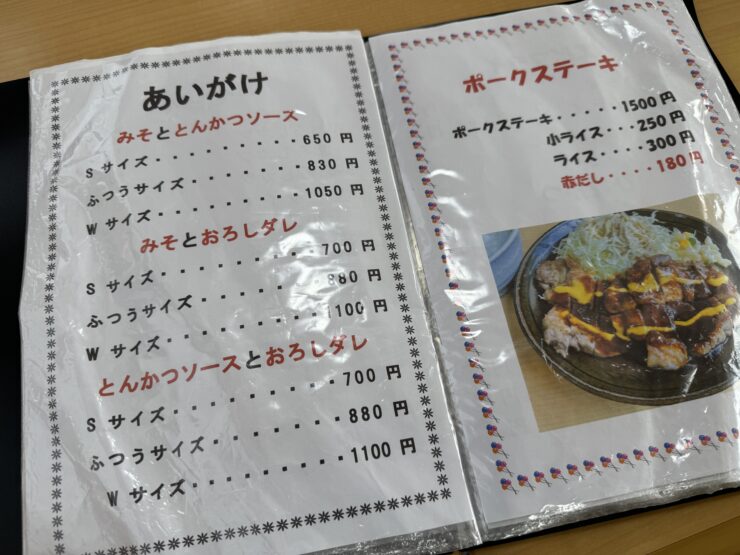 あいがけ
みそととんかつソース
S サイズ・・・・・・・・・650 円
ふつうサイズ・・・・・・・830 円
W サイズ・・・・・・・・・1050 円
みそとおろしダレ
S サイズ・・・・・・・・・700 円
ふつうサイズ・・・・・・・880 円
W サイズ・・・・・・・・・1100 円
とんかつソースとおろしダレ
S サイズ・・・・・・・・・700 円
ふつうサイズ・・・・・・・880 円
W サイズ・・・・・・・・・1100 円
ポークステーキ
ポークステーキ・・・・・1500 円
小ライス・・・250 円
ライス・・・・300 円
赤だし・・・・180 円